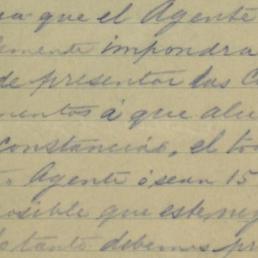 que el Agente
mente impondra
de presentar las C
mentos á que alu
constancias, el to
Agente ó sean 15
osible que este neg
tanto debemos pr